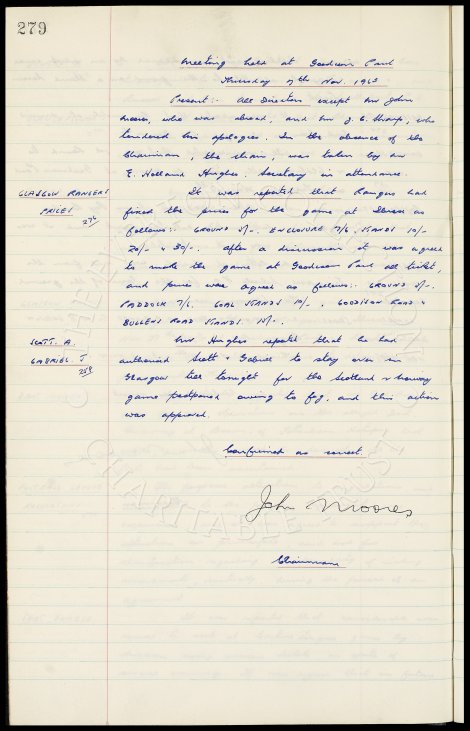 279
Meeting held at Goodison Park
Thursday 7th Nov. 1963
Present:- All Directors except Mr John
Moores, who was abroad, and Mr J. C. Sharp, who
tendered his apologies. In the absence of the
Chairman, the chair, was taken by Mr
E. Holland Hughes. Secretary in attendance.
GLASGOW RANGERS
PRICES
274
It was reported that Rangers had
fixed the prices for the game at Ibrox as
follows:- GROUND 5/-. ENCLOSURE 7/6. STANDS 10/-
20/- & 30/-. After a discussion it was agreed
to make the game at Goodison Park all ticket,
and prices were agreed as follows:- GROUND 5/-.
PADDOCK 7/6. GOAL STANDS 10/-. GOODISON ROAD &
BULLENS ROAD STANDS. 15/-.
SCOTT. A.
GABRIEL. J
259
Mr Hughes reported that he had
authorised Scott & Gabriel to stay over in
Glasgow till tonight for the Scotland v Norway
game postponed owing to fog. and this action
was approved.
Confirmed as correct.
John Moores
Chairman
CHARITABLE TRUST